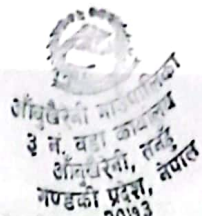 आँबुखैरेनी गाउँपालिका
३ नं. वडा कार्यालय
आँबुखैरेनी, तनहुँ
गण्डकी प्रदेश, नेपाल
२०७३